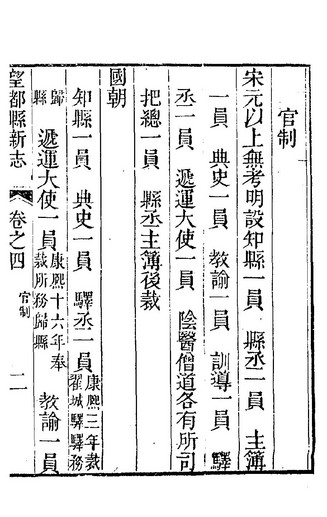 官制
宋元以上無考明設知縣一員 縣丞一員 主簿
一員 典史一員 教諭一員 訓導一員 驛
丞一員 遞運大使一員 陰醫僧道各有所司
把總一員 縣丞主簿後裁
國朝
知縣一員 典史一員 驛丞一員 康熙三年裁
翟城驛驛務
歸
縣 遞運大使一員 康熙十六年奉
裁所務歸縣 教諭一員
望都縣新志 卷之四 官制 二